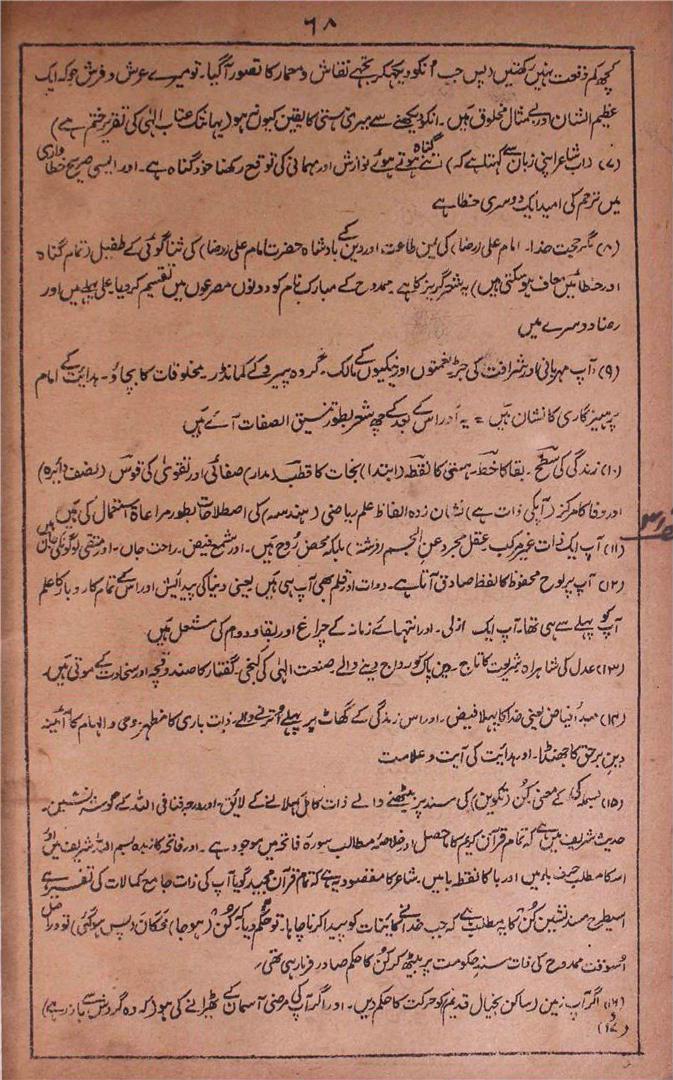 ۶۸
کچھ کم وقعت نہیں رکھتیں (پس جب اُنکو دیکھکر تجھے نقاش و معمار کا تصور آگیا۔ تو میرے عرش و فرش جو کہ ایک
عظیم الشان اور بے مثال مخلوق ہیں۔ انکو دیکھنے سے میری ہستی کا یقین کیوں نہ ہو (یہانتک عتاب الٰہی کی تقریر ختم ہے)
(۷) (اب شاعر اپنی زبان سے کہتا ہے کہ) اتنے گناہ ہوتے ہوئے نوازش اور مہمانی کی توقع رکھنا خود گناہ ہے۔ اور ایسی صریح خطاواری
میں ترحم کی امید ایک دوسری خطا ہے
(۸) مگر حجت خدا۔ امام علی (رضا) کی عین طاعت اور دین کے بادشاہ حضرت امام علی (رضا) کی ثنا گوئی کے طفیل (تمام گناہ
اور خطائیں معاف ہو سکتی ہیں) یہ شعر گریز کا ہے۔ ممدوح کے مبارک نام کو دونوں مصرعوں میں تقسیم کر دیا۔ علی پہلے میں اور
رضا دوسرے میں
(۹) آپ مہربانی اور شرافت کی جڑ۔ نعمتوں اور نیکیوں کے مالک۔ گروہ پیرو کے کمانڈر۔ مخلوقات کا بچاؤ۔ ہدایت کے امام
پرہیزگاری کا نشان ہیں = یہ اور اس کے بعد کے چھ شعر بطور تنسیق الصفات آئے ہیں
(۱۰) زندگی کی سطح۔ بقا کا خط۔ ہستی کا نقطہ (ابتدا) نجات کا قطب (مدار) صفائی اور تقویٰ کی قوس (نصف دائرہ)
اور وفا کا مرکز (آپکی ذات ہے) نشان زدہ الفاظ علم ریاضی (ہندسہ) کی اصطلاحات بطور مراعاۃ استعمال کی ہیں
(۱۱) آپ ایک ذات غیر مرکب عقل مجرد عن الجسم (فرشتہ) بلکہ محض روح ہیں۔ اور شمع فیض۔ راحت جاں۔ اور متقی لوگونکی جان ہیں
(۱۲) آپ پر لوح محفوظ کا لفظ صادق آتا ہے۔ دوات اور قلم بھی آپ ہی ہیں یعنی دنیا کی پیدائش اور اس کے تمام کاروبار کا علم
آپ کو پہلے سے ہی تھا۔ آپ ایک ازلی۔ اور انتہائے زمانہ کے چراغ اور بقا و دوام کی مشعل ہیں
(۱۳) عدل کی شاہراہ شریعت کا تاج۔ دین پاک کو رواج دینے والے۔ صنعت الٰہی کی کنجی۔ گفتار کا صندوقچہ اور سخاوت کے موتی ہیں۔
(۱۴) مبدأ فیاض یعنی خدا کا پہلا فیض۔ اور اس زندگی کے گھاٹ پر پہلے اُترنے والے۔ ذات باری کا مظہر۔ وحی و الہام کا آئینہ
دین برحق کا جھنڈا۔ اور ہدایت کی آیت و علامت
(۱۵) بسملہ کے معنی کُن (تکوین) کی مسند پر بیٹھنے والے ذات کامل کہلانے کے لائق۔ اور درجہ فنا فی اللہ کے گوشہ نشین۔
حدیث شریف میں ہے کہ تمام قرآن کریم کا ماحصل اور خلاصہ مطالب سورۃ فاتحہ میں موجود ہے۔ اور فاتحہ کا زبدہ بسم اللہ شریف میں اور
اسکا مطلب حرف باء میں اور با کا نقطہ با میں۔ شاعر کا مقصود یہ ہے کہ تمام قرآن مجید گویا آپ کی ذات جامع کمالات کی تفسیر ہے
اسیطرح مسند نشین کُن کا یہ مطلب ہے کہ جب خدا نے کائنات کو پیدا کرنا چاہا۔ تو حکم دیا کہ کُن (ہو جا) فکان (پس ہو گئی) تو دراصل
اُسوقت ممدوح کی ذات مسند حکومت پر بیٹھ کر کُن کا حکم صادر فرما رہی تھی۔
(۱۶) و (۱۷) اگر آپ زمین (ساکن بخیال قدیم) کو حرکت کا حکم دیں۔ اور اگر آپ کی مرضی آسمان کے ٹھہرانے کی ہو (کہ وہ گردش سے باز رہے)